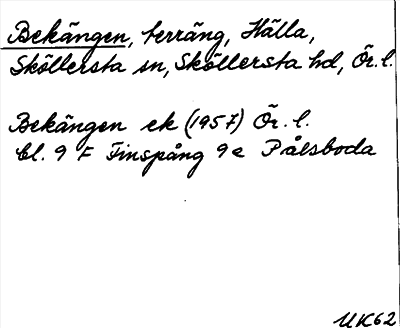 Bekängen, terräng, Hälla,
Sköllersta sn, Sköllersta hd, Ör. l.
Bekängen ek (1957) Ör. l.
bl. 9 F Finspång 9 e Pålsboda
UK62